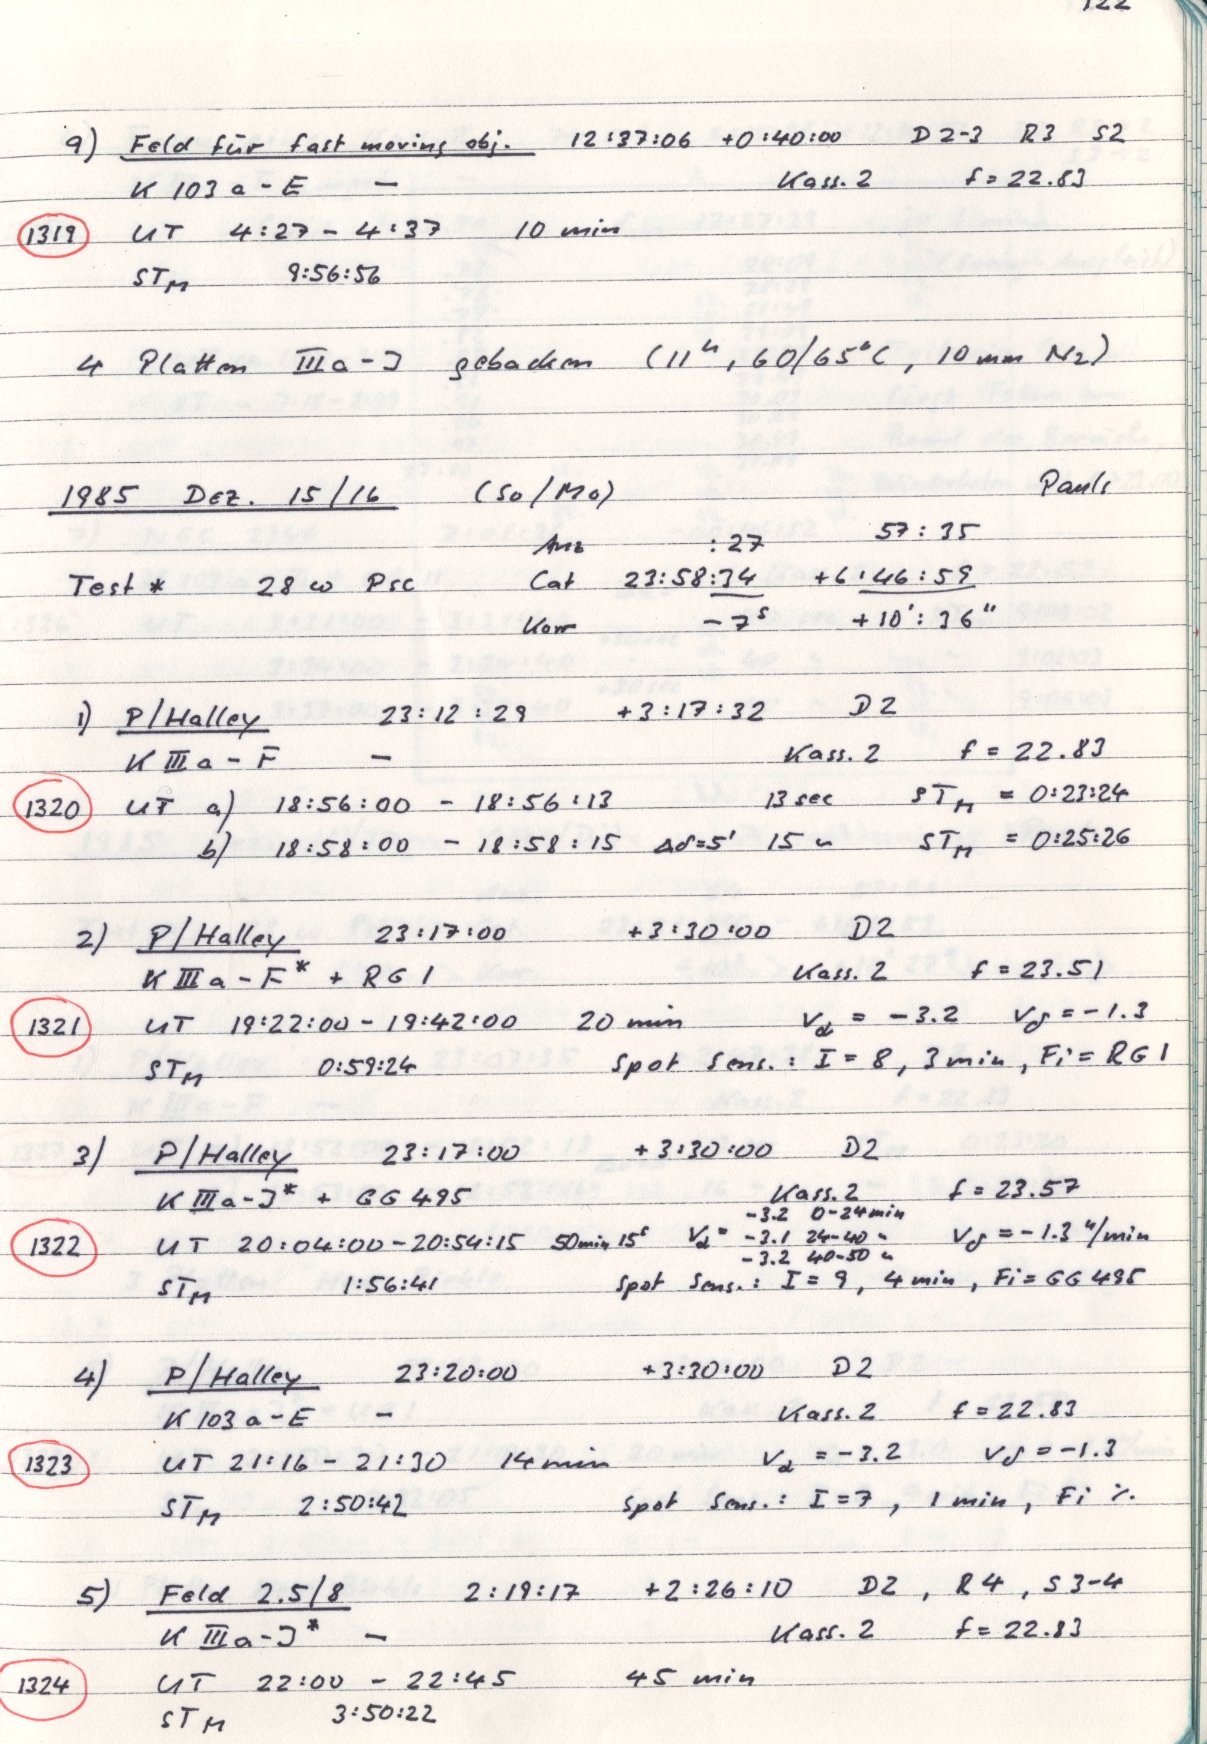 122
9) Feld für fast moving obj. 12:37:06 +0:40:00 D2-3 R3 S2
K 103a-E — Kass. 2 f = 22.83
1319 UT 4:27 - 4:37 10 min
STM 9:56:56
4 Platten IIIa-J gebacken (11h, 60/65°C, 10 mm N2)
1985 Dez. 15/16 (So/Mo) Pauls
Anz :27 57:35
Test * 28 ω Psc Cat 23:58:34 +6:46:59
Korr -7s +10':36"
1) P/Halley 23:12:29 +3:17:32 D2
K IIIa-F — Kass. 2 f = 22.83
1320 UT a) 18:56:00 - 18:56:13 13 sec STM = 0:23:24
b) 18:58:00 - 18:58:15 Δδ=5' 15 " STM = 0:25:26
2) P/Halley 23:17:00 +3:30:00 D2
K IIIa-F* + RG1 Kass. 2 f = 23.51
1321 UT 19:22:00 - 19:42:00 20 min Vα = -3.2 Vδ = -1.3
STM 0:59:24 Spot Sens.: I = 8, 3 min, Fi = RG1
3) P/Halley 23:17:00 +3:30:00 D2
K IIIa-J* + GG495 Kass. 2 f = 23.57
-3.2 0-24 min
1322 UT 20:04:00 - 20:54:15 50min 15s Vα = -3.1 24-40 " Vδ = -1.3 "/min
-3.2 40-50 "
STM 1:56:41 Spot Sens.: I = 9, 4 min, Fi = GG495
4) P/Halley 23:20:00 +3:30:00 D2
K 103a-E — Kass. 2 f = 22.83
1323 UT 21:16 - 21:30 14 min Vα = -3.2 Vδ = -1.3
STM 2:50:42 Spot Sens.: I = 7, 1 min, Fi ٪
5) Feld 2.5/8 2:19:17 +2:26:10 D2, R4, S3-4
K IIIa-J* — Kass. 2 f = 22.83
1324 UT 22:00 - 22:45 45 min
STM 3:50:22